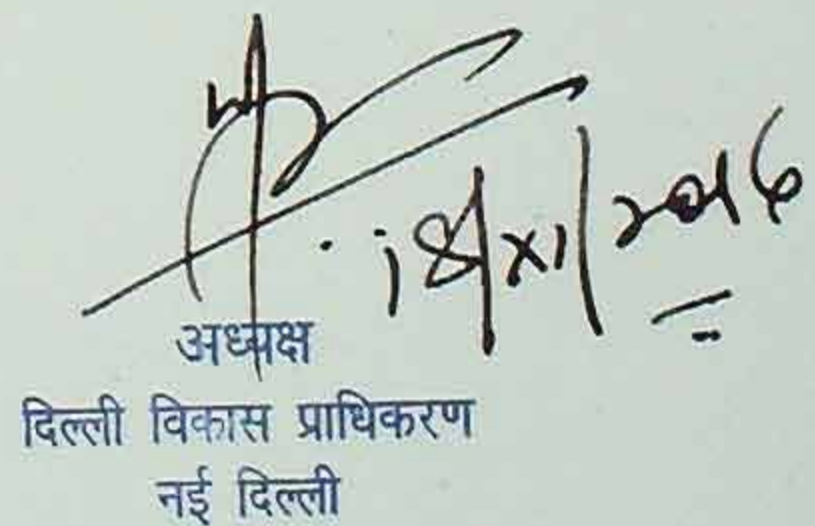 18/XI/2016
अध्यक्ष
दिल्ली विकास प्राधिकरण
नई दिल्ली